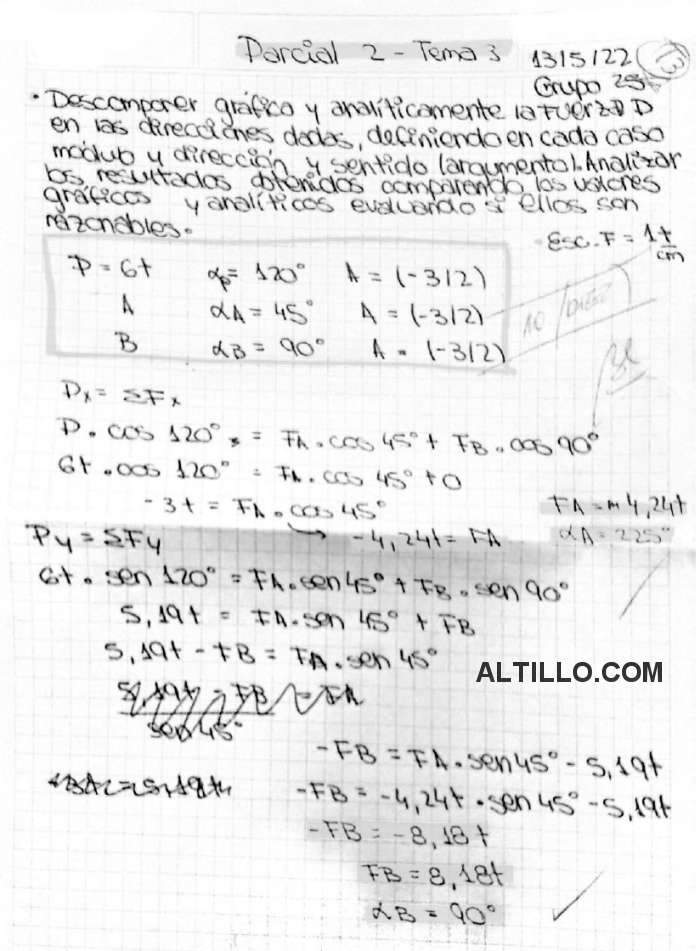 Parcial 2 - Tema 3
13/5/22
Grupo 25
• Descomponer gráfico y analíticamente la Fuerza D
en las direcciones dadas, definiendo en cada caso
modulo y dirección y sentido (argumento). Analizar
los resultados obtenidos comparando los valores
gráficos y analíticos evaluando si ellos son
razonables.
Esc. F = 1t/cm
P = 6t αp = 120° A = (-3/2)
A αA = 45° A = (-3/2)
B αB = 90° A = (-3/2)
10 (DIEZ)
Px = ΣFx
P. cos 120° = FA. cos 45° + FB. cos 90°
6t. cos 120° = FA. cos 45° + 0
-3t = FA. cos 45°
→ -4,24t = FA
FA = 4,24t
αA = 225°
Py = ΣFy
6t. sen 120° = FA. sen 45° + FB. sen 90°
5,19t = FA. sen 45° + FB
5,19t - FB = FA. sen 45°
5,19t - FB = FA
sen 45°
ALTILLO.COM
-FB = FA. sen 45° - 5,19t
-FB = -4,24t. sen 45° - 5,19t
-FB = -8,18t
FB = 8,18t
αB = 90°